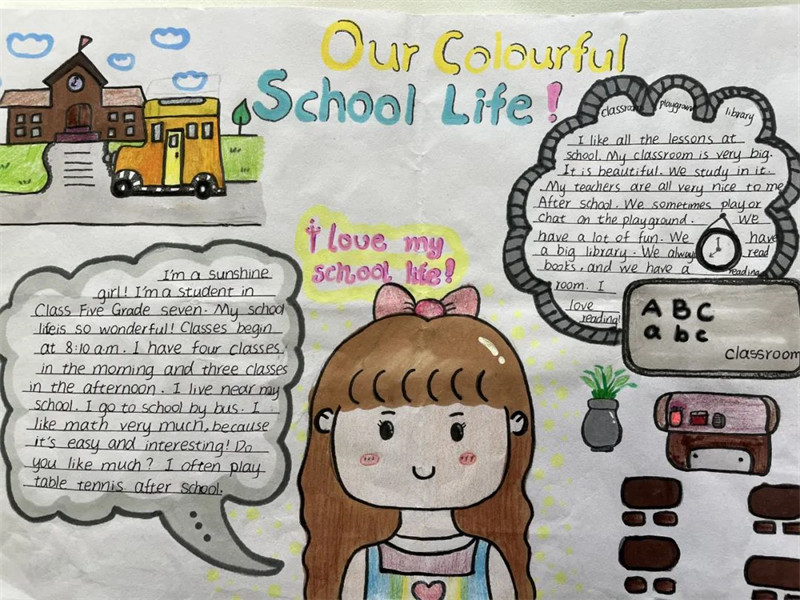 Our Colourful
School Life!
classroom playground library
I like all the lessons at
school. My classroom is very big.
It is beautiful. We study in it.
My teachers are all very nice to me
After school. We sometimes play or
chat on the playground. We
have a lot of fun. We have
a big library. We always read
books, and we have a reading
room. I
love
reading!
i love my
school life!
I'm a sunshine
girl! I'm a student in
Class Five Grade seven. My school
life is so wonderful! Classes begin
at 8:10 a.m. I have four classes
in the morning and three classes
in the afternoon. I live near my
school. I go to school by bus. I
like math very much, because
it's easy and interesting! Do
you like much? I often play
table tennis after school.
A B C
a b c
classroom